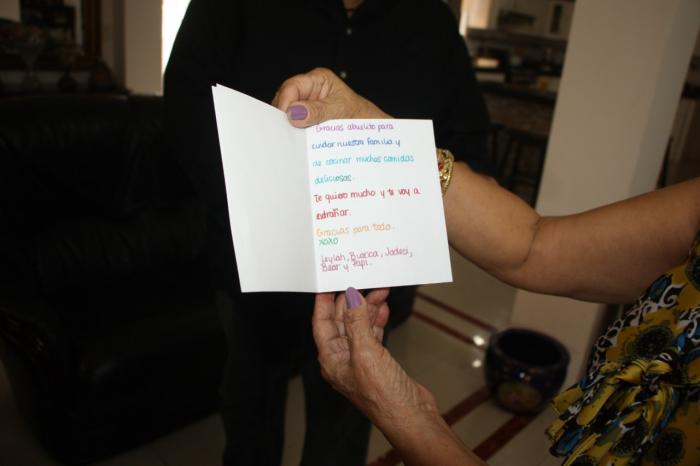 Gracias abuelito para
cuidar nuestra familia y
de cocinar muchas comidas
deliciosas.
Te quiero mucho y te voy a
extrañar.
Gracias para todo.
xoxo
Leylah, Bianca, Jadeci,
Bear y Papi.